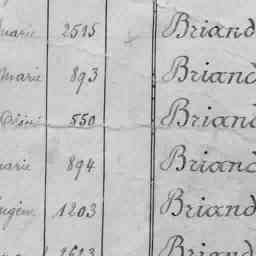 Marie 2515 Briand
Marie 893 Briand
550 Briand
Marie 894 Briand
Eugène 1203 Briand
2613 Briand